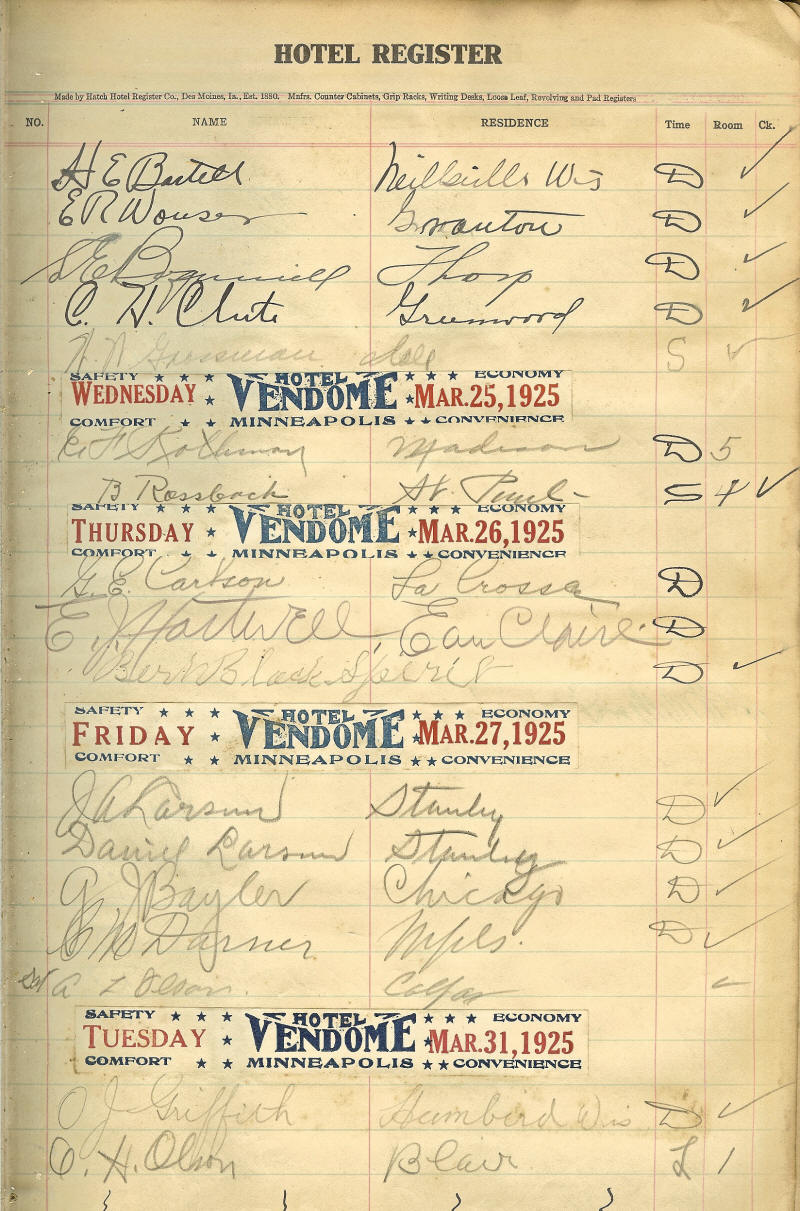 HOTEL REGISTER
Made by Hatch Hotel Register Co., Des Moines, Ia., Est. 1880. Mnfrs. Counter Cabinets, Grip Racks, Writing Desks, Loose Leaf, Revolving and Pad Registers
NO. NAME RESIDENCE Time Room Ck.
H E Bartell Neillsville Wis D ✓
E R Wouser Granton D ✓
S E Thorp D ✓
C. H. Chute Greenwood D ✓
Grossman S ✓
SAFETY ★ ★ ★ HOTEL ★ ★ ★ ECONOMY
WEDNESDAY ★ VENDOME ★ MAR. 25, 1925
COMFORT ★ ★ MINNEAPOLIS ★ ★ CONVENIENCE
Madison D 5
B Rossbach St. Paul- S 4 ✓
SAFETY ★ ★ ★ HOTEL ★ ★ ★ ECONOMY
THURSDAY ★ VENDOME ★ MAR. 26, 1925
COMFORT ★ ★ MINNEAPOLIS ★ ★ CONVENIENCE
G. E. Carlson La Crosse D
E. J Hartwell, Eau Claire. D
Bert Black Spirit D ✓
SAFETY ★ ★ ★ HOTEL ★ ★ ★ ECONOMY
FRIDAY ★ VENDOME ★ MAR. 27, 1925
COMFORT ★ ★ MINNEAPOLIS ★ ★ CONVENIENCE
J A Larson Stanley D ✓
Daniel Larson Stanley D ✓
G J Bayler Chicago D ✓
C M Darner Mpls. D ✓
A L Olson. Colfax ✓
SAFETY ★ ★ ★ HOTEL ★ ★ ★ ECONOMY
TUESDAY ★ VENDOME ★ MAR. 31, 1925
COMFORT ★ ★ MINNEAPOLIS ★ ★ CONVENIENCE
O J Griffith Humbird Wis D ✓
O. H. Olson Blair L 1